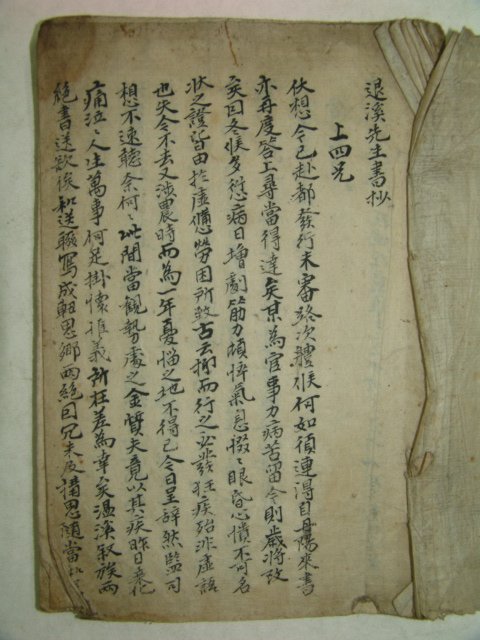 退溪先生書抄
上四兄
伏想令已赴都發行未審路次體候何如須連得自丹陽來書
亦再度答上尋當得達矣某為官事力病苦留今則歲將改
矣因冬候多愆病日增劇筋力頓悴氣息惙〻眼昏心憒不可名
狀之證皆由於虛憊勞困所致古云抑而行之必發狂疾殆非虛語
也失今不去又涉農時而為一年憂惱之地不得已今日呈辭然監司
想不速聽奈何〻此間當觀勢處之金質夫竟以其疾昨日來化
痛泣〻人生萬事何足掛懷推義所在差為幸矣溫溪叙族兩
絶書送欲後和送輟寫成軒思鄉兩絶因兄未及猶思隨當